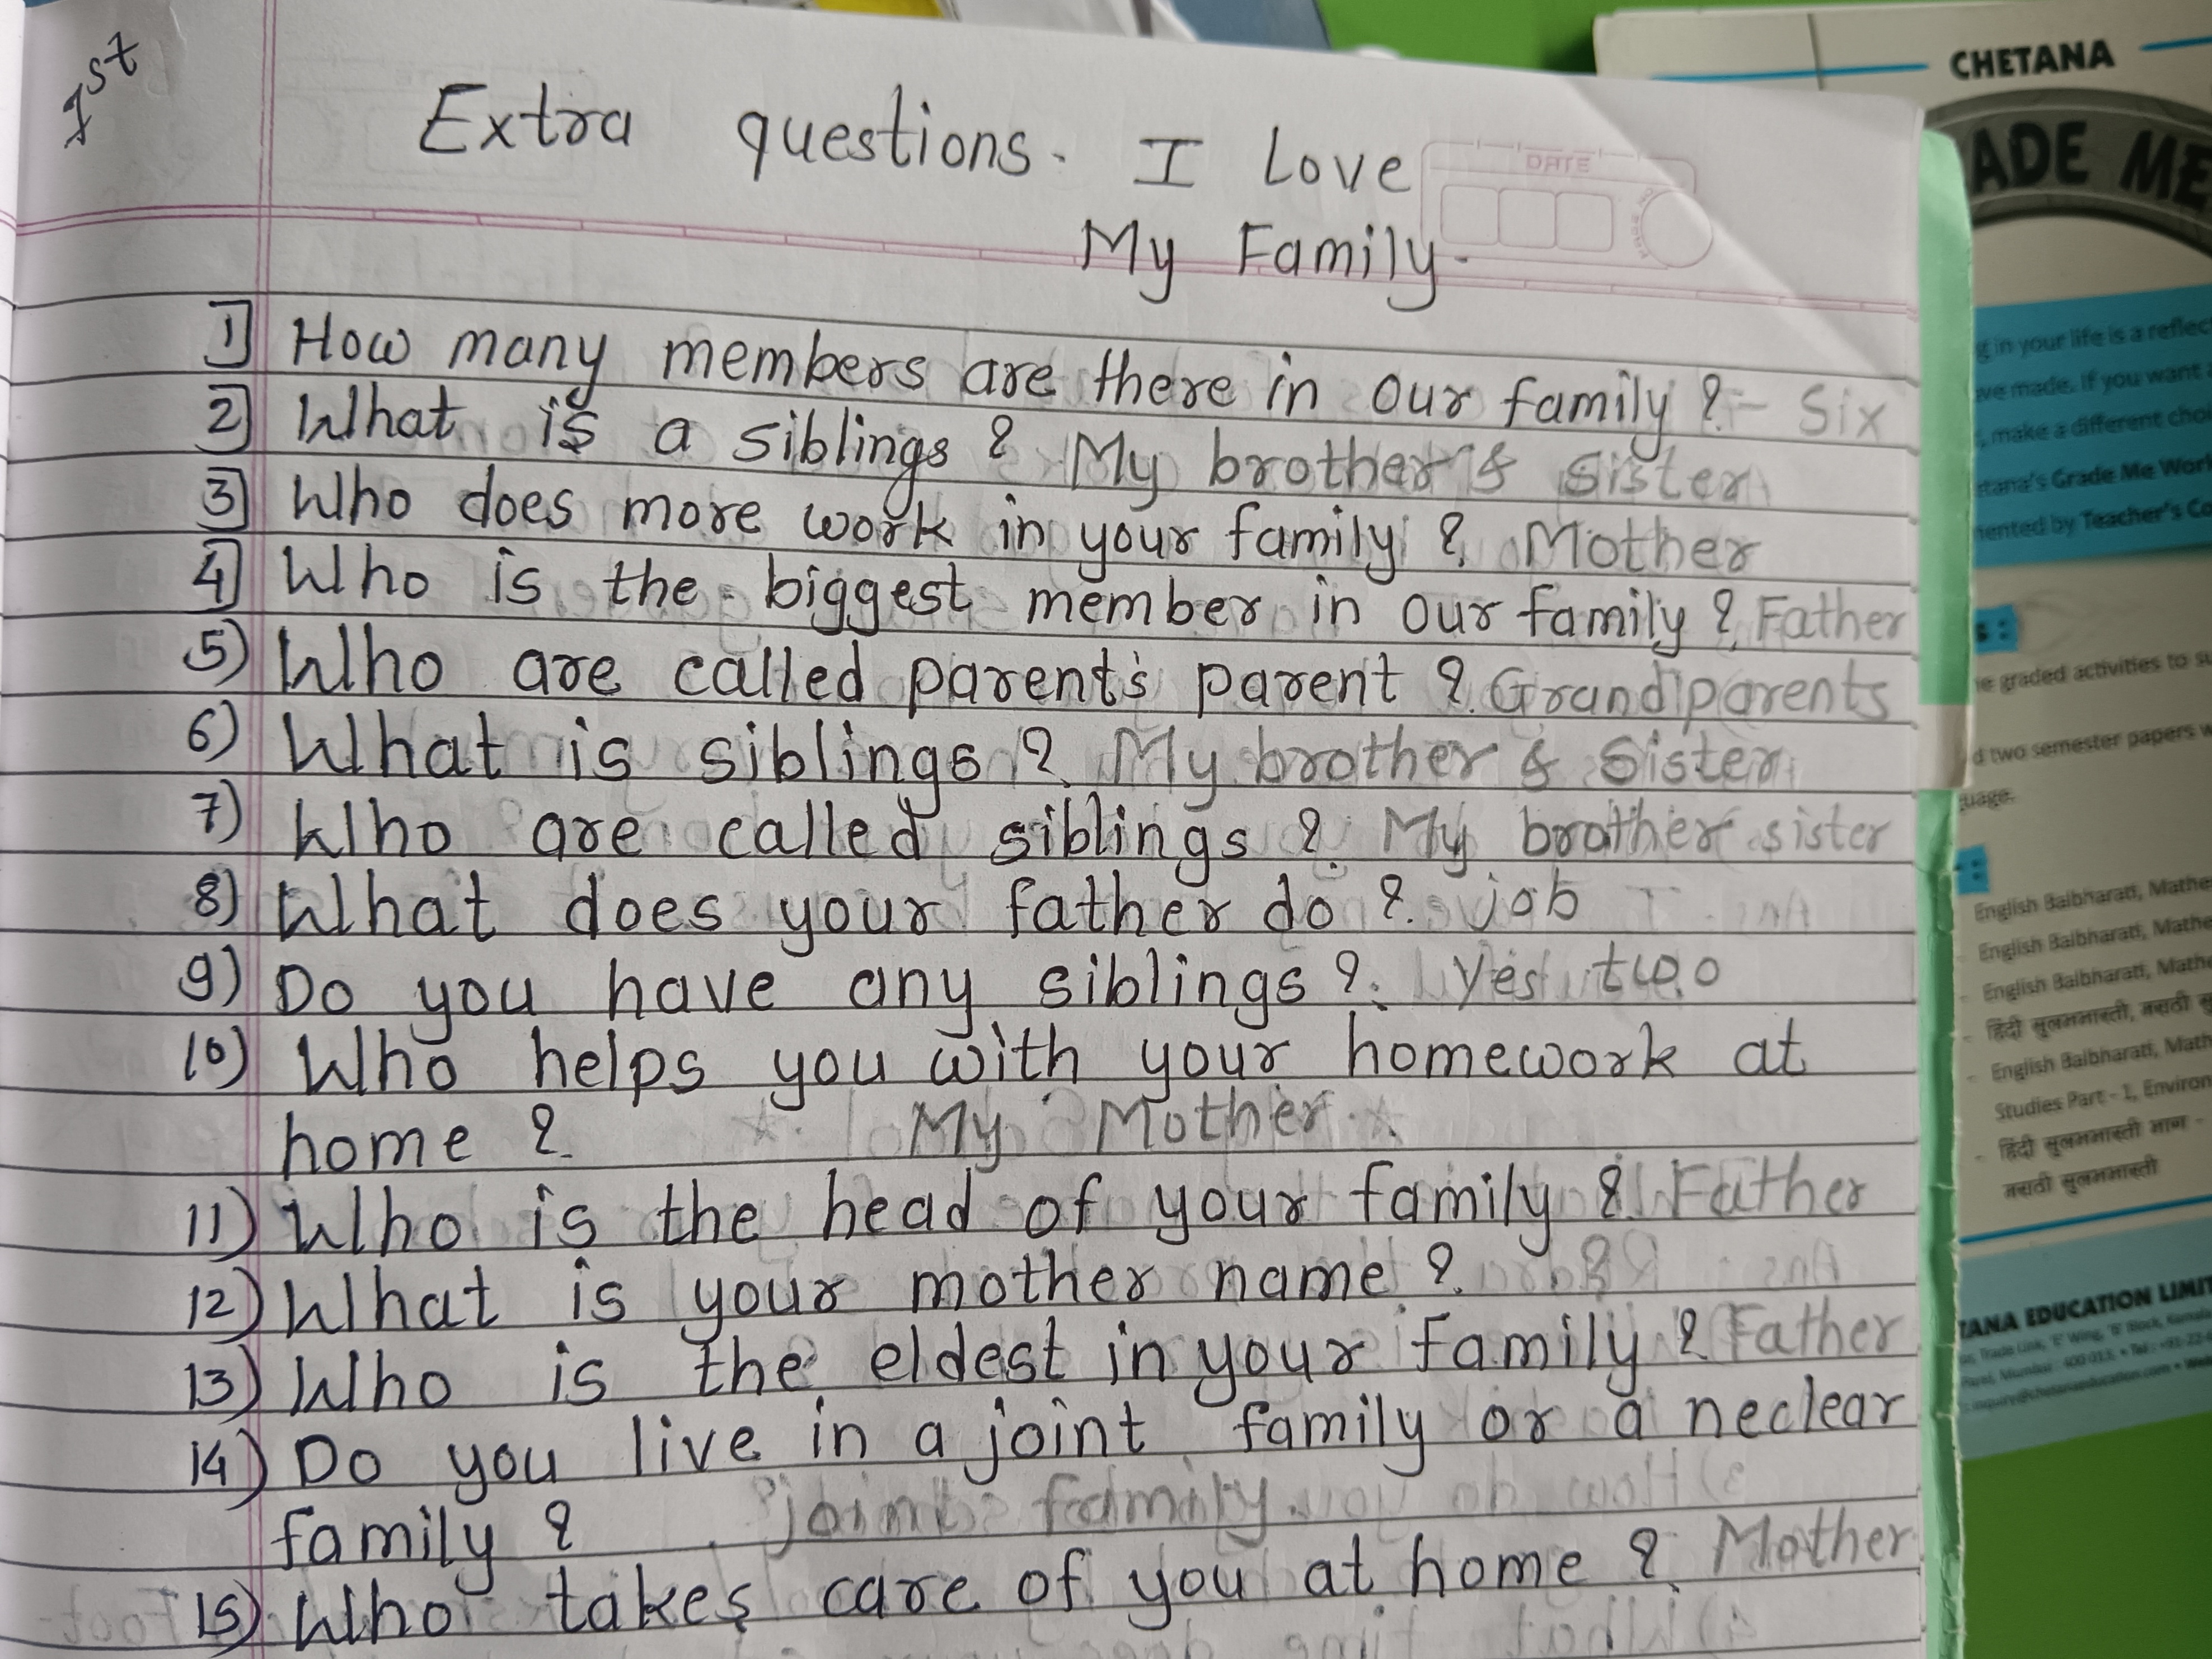 1st
Extra questions. I Love
My Family.
1] How many members are there in our family ? - Six
2] What is a siblings ? My brother & sister
3] Who does more work in your family ? Mother
4] Who is the biggest member in our family ? Father
5) Who are called parent's parent ? Grandparents
6) What is siblings ? My brother & Sister
7) Who are called siblings ? My brother sister
8) What does your father do ? job
9) Do you have any siblings ? Yes two
10) Who helps you with your homework at
home ? My Mother
11) Who is the head of your family ? Father
12) What is your mother name ?
13) Who is the eldest in your family ? Father
14) Do you live in a joint family or a neclear
family ? joint family.
15) Who takes care of you at home ? Mother
CHETANA
ADE ME
g in your life is a reflec
ve made. If you want a
, make a different cho
etana's Grade Me Work
ented by Teacher's Co
s :
e graded activities to su
d two semester papers w
uage.
:
English Balbharati, Mathe
- English Balbharati, Mathe
- English Balbharati, Mathe
- हिंदी सुलभभारती, मराठी सु
- English Balbharati, Math
Studies Part - 1, Environ
- हिंदी सुलभभारती भाग -
मराठी सुलभभारती
TANA EDUCATION LIMIT